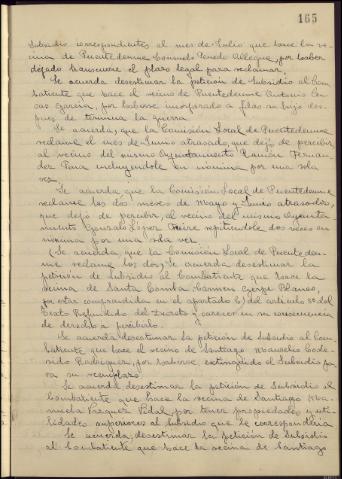 165
Subsidio correspondientes al mes de Julio que hace la ve-
cina de Puentedeume Consuelo Penedo Allegue, por haber
dejado transcurrir el plazo legal para reclamar.
Se acuerda desestimar la petición de Subsidio al Com
batiente que hace el vecino de Puentedeume Antonio
García, por haberse incorporado a filas su hijo des-
pues de termina la guerra
Se acuerda, que la Comisión Local de Puentedeume
reclame el mes de Junio atrasado, que dejó de percibir
al vecino del mismo Ayuntamiento Ramón Fernan-
dez incluyendole en nómina por una sola
vez.
Se acuerda que la Comisión Local de Puentedeume
reclame los dos meses de Mayo y Junio atrasados,
que dejó de percibir, al vecino del mismo Ayunta
miento Gonzalo Lopez repitiendole dos veces en
nómina por una sola vez.
(Se acuerda que la Comisión Local de Puentedeu-
me reclame los dos) Se acuerda desestimar la
petición de Subsidio al Combatiente que hace la
vecina de Santa Comba Carmen Blanco,
por estar comprendida en el apartado b) del artículo 8º del
Texto Refundido del Decreto y carecer en su consecuencia
de derecho a percibirlo.
Se acuerda desestimar la petición de Subsidio al Com
batiente que hace el vecino de Santiago
Rodriguez, por haberse extinguido el Subsidio pa
ra su reemplazo.
Se acuerda desestimar la petición de Subsidio al
Combatiente que hace la vecina de Santiago Ma-
nuela Vazquez Vidal, por tener propiedades y uti-
lidades superiores al subsidio que le correspondería
Se acuerda, desestimar la petición de Subsidio
al Combatiente que hace la vecina de Santiago